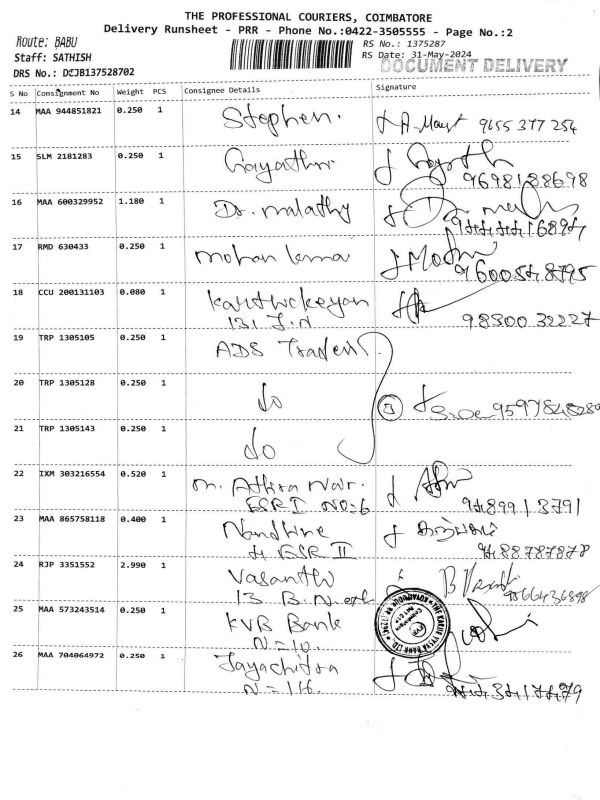 THE PROFESSIONAL COURIERS, COIMBATORE
Delivery Runsheet - PRR - Phone No.:0422-3505555 - Page No.:2
Route: BABU
RS No.: 1375287
Staff: SATHISH
RS Date: 31-May-2024
DOCUMENT DELIVERY
DRS No.: DCJB137528702
S No Consignment No Weight PCS Consignee Details Signature
14 MAA 944851821 0.250 1 Stephen. 9655 377 254
15 SLM 2181283 0.250 1 Gayathri
9698138698
16 MAA 600329952 1.180 1 Dr. malathy
17 RMD 630433 0.250 1 mohan kumar
18 CCU 200131103 0.080 1 Karthickeyan
98300 32227
19 TRP 1305105 0.250 1 ADS Traders
20 TRP 1305128 0.250 1 do
21 TRP 1305143 0.250 1 do
22 IXM 303216554 0.520 1 m. Athira Nair.
ESR I NO:6
23 MAA 865758118 0.400 1 Nandhine
ESR II
24 RJP 3351552 2.990 1 Vasantho
13
25 MAA 573243514 0.250 1 KVB Bank
N=10.
26 MAA 704064972 0.250 1 Jayachitra
N=116.